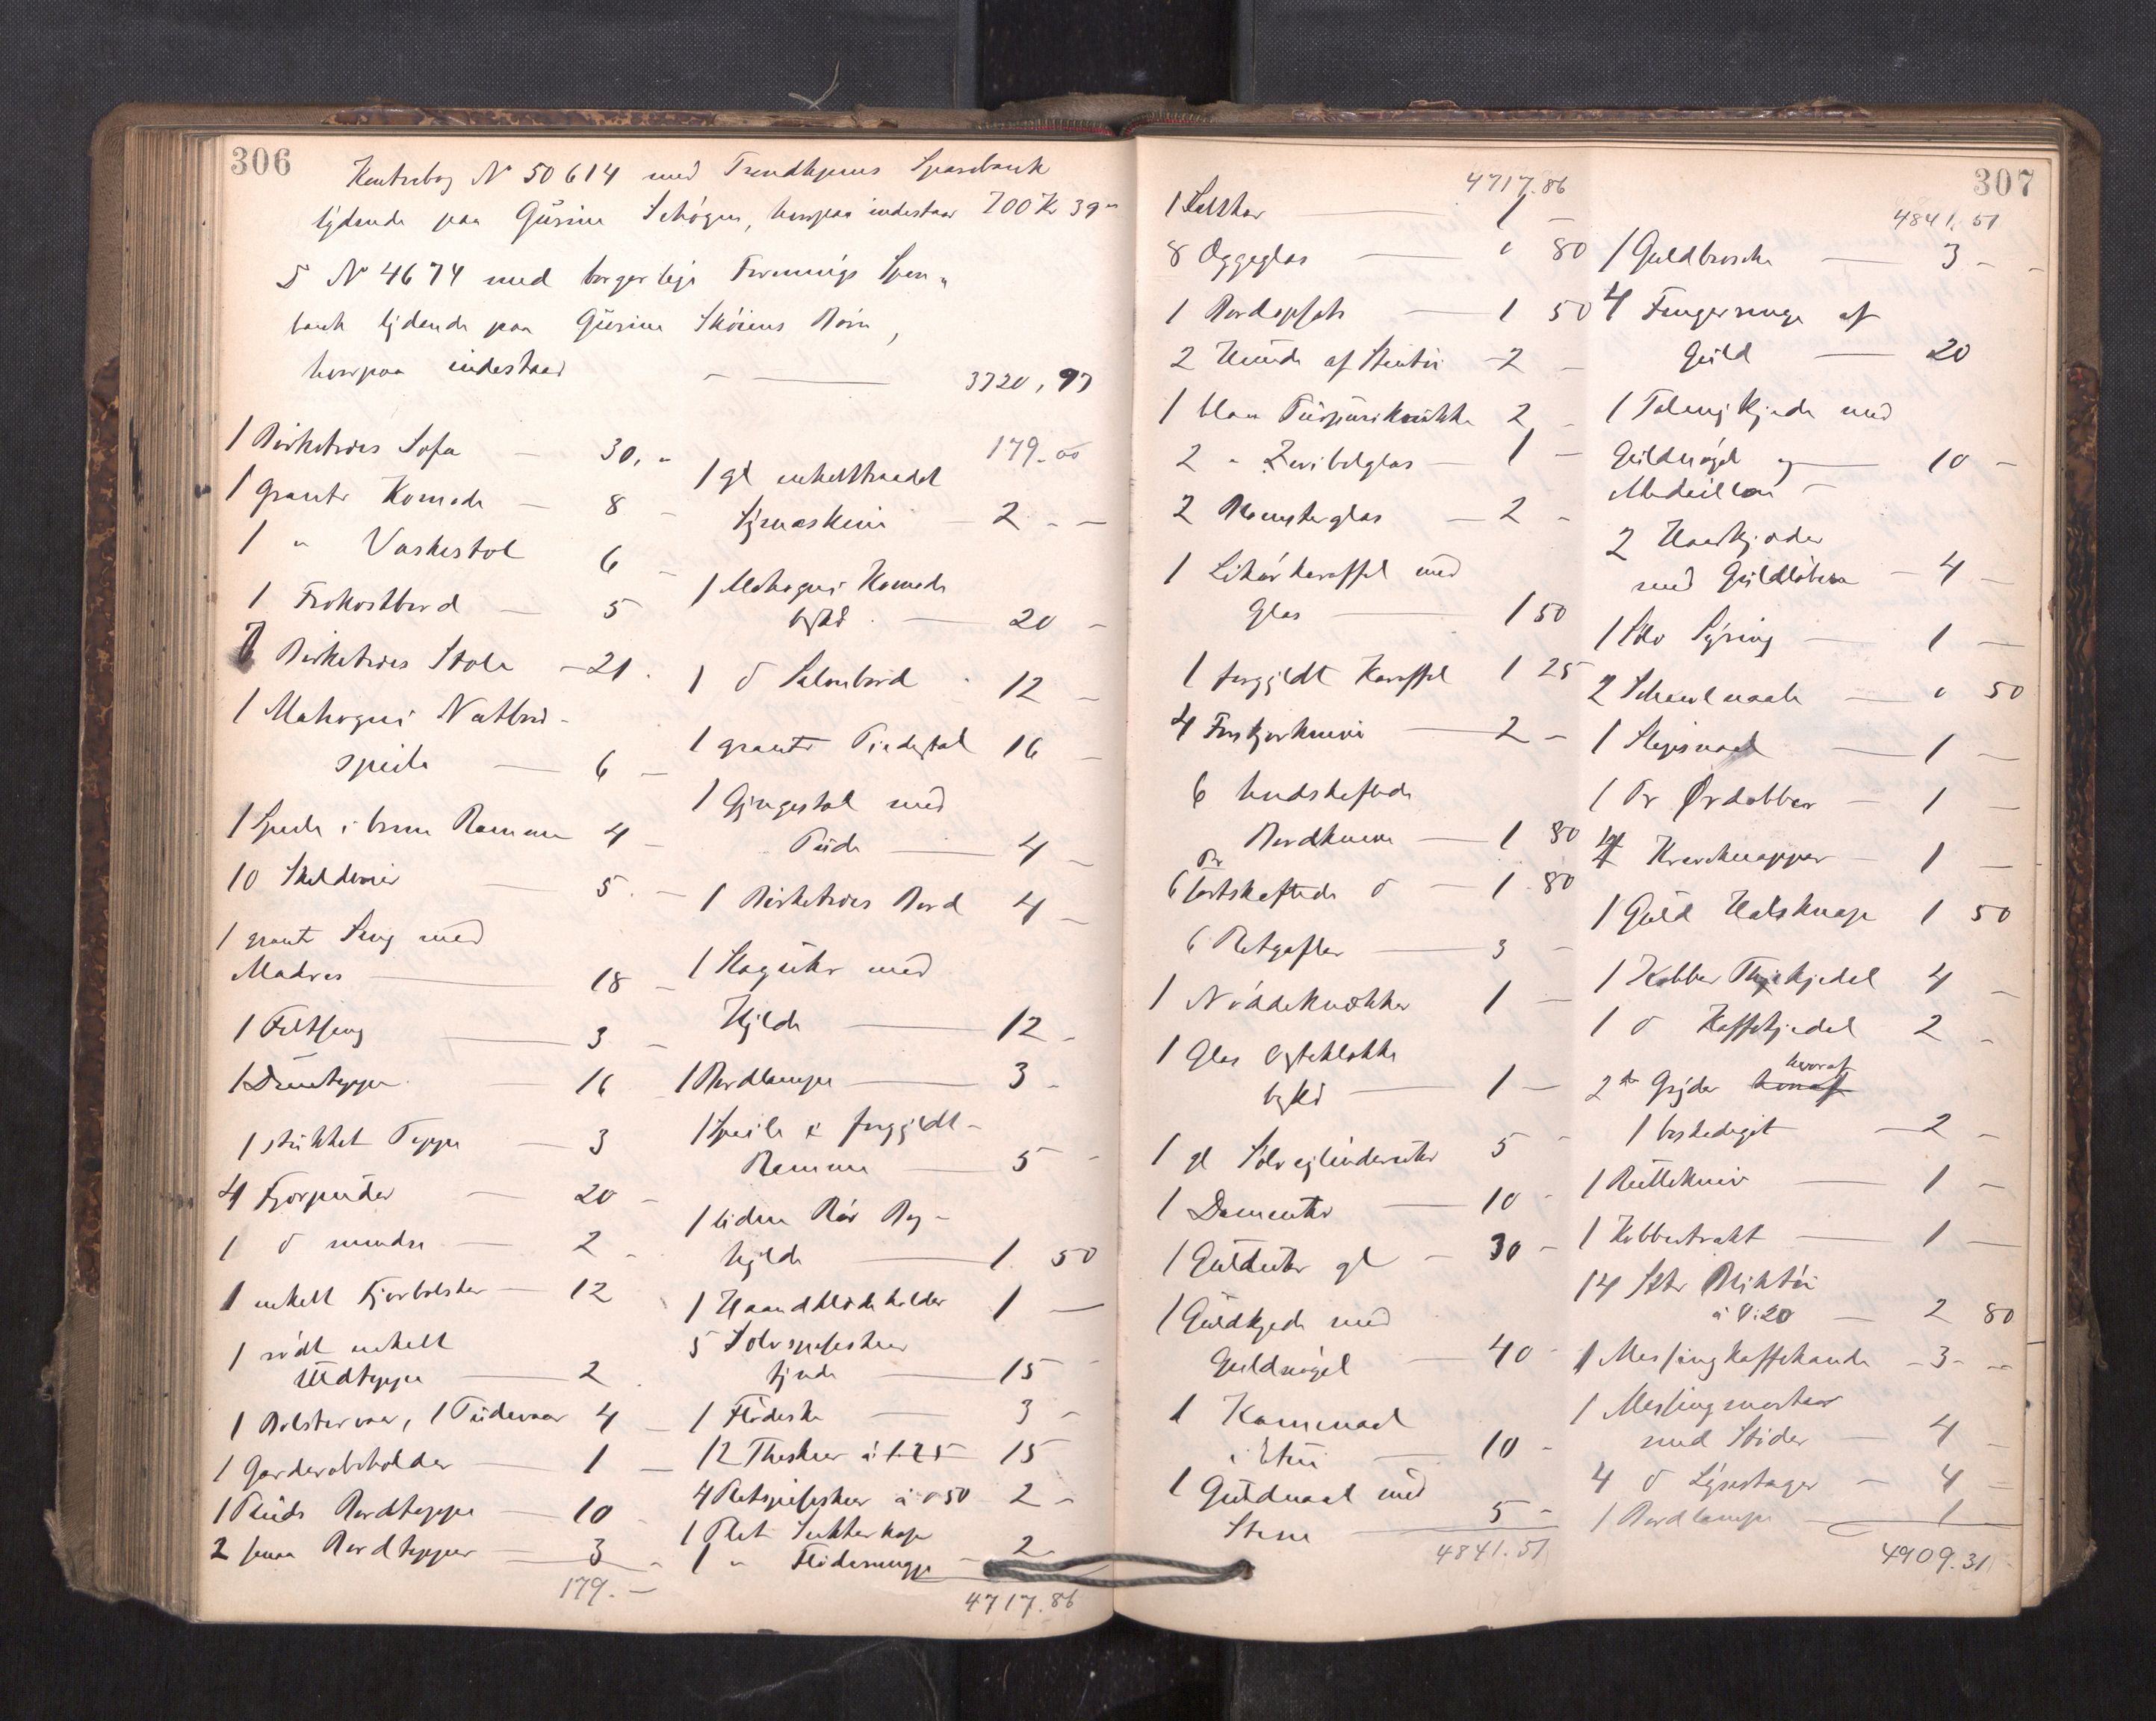 306
Kontrabog № 50614 med Trondhjems Sparebank
lydende paa Gurine Schögen, hvorpaa indestaar 700 Kr 39
№ 4674 med borgerlige Forenings Spare
bank lydende paa Gurine Skóiens Navn,
hvorpaa indestaar — 3720,97
1 Birketræes Sofa — 30,-
1 grantr Komode — 8 -
1 " Vaskestol 6 -
1 Frokostbord — 5
7 Birketræes Stole — 21.
1 Mahogni Natbord-
speile — 6 -
1 Speile i brun Ramme 4 -
10 Skilderier — 5. -
1 grantr Seng med
Madras — 18 -
1 Feltseng — 3 -
1 Dunteppe 16
1 stukket Teppe — 3
4 Fjærputer — 20 -
1 do mindre — 2 -
1 enkelt Fjærbolster — 12
1 rödt enkelt
Uldteppe — 2.
1 Bolstervaar, 1 Pudevaar 4 -
1 Garderobeholder — 1 -
1 Pluds Bordteppe — 10
2 smaa Bordtepper — 3 -
179.-
179.00
1 gl enkelttraadet
Symaskine — 2 - -
1 Mahogni Komode
bgkd. — 20 -
1 do Salonbord . 12 -
1 grantr Piedestal 16 -
1 Gyngestol med
Pude — 4 -
1 Birketræes Bord 4 -
1 Slaguhr med
Hylde — 12 -
1 Bordlampe — 3 -
1 Speile i forgyldt-
Ramme — 5 -
1 liden Rör Bog-
hylde — 1. 50
1 Haandklædeholder 1 -
5 Sølvspiseskeer
tynde — 15 -
1 Flödeske — 3 -
12 Theskeer à 1.25 15
4 Pletspiseskeer à 0 50 2 -
1 Plet Sukkerkop
1 " Flödemugge — 2 -
4717.86
4717.86
1 Saltkar 1 -
8 Æggeglas — 0 80
1 Bordopsats — 1 50
2 Hunde af Stentöi - 2 -
1 blaa Purpurikrukke 2 -
2 " Zwibelglas — 1 -
2 Blomsterglas — 2 -
1 Likörkaraffel med
Glas — 1 50
1 forgyldt Karaffel 1 25
4 Forskjærknive — 2 -
6 hvidskaftede
Bordknive — 1 80
Pr
6 sortskaftede do — 1. 80
6 Pletgafler — 3 -
1 Nöddeknækker 1 -
1 Glas Osteklokke
bgkd — 1 -
1 gl Sölvcylinderuhr 5 -
1 Dameuhr — 10 -
1 Gulduhr gl — 30 -
1 Guldkjede med
Guldnögel — 40 -
1 Kammaal
i Etui — 10 -
1 Guldnaal med
Stene — 5 -
4841.51
307
4841.51
1 Guldbroche — 3 -
4 Fingerringe af
Guld — 20
1 Talmi Kjede med
Guldnögel og — 10 -
Medaillon -
2 Haarkjeder
med Guldlaase — 4 -
1 Sölv Syring — 1 -
2 Schawlnaale — 0 50
1 Slipsnaal — 1 -
1 Pr Ørdobber — 1 -
4 Kraveknapper — 1 -
1 Guld Halsknap 1 50
1 Kobber Thekjedel 4 -
1 do Kaffekjedel 2 -
2 do Gryder hvoraf
1 beskadiget — 2 -
1 Rullekniv — 1 -
1 Kobbertrakt — 1 -
14 Stkr Bliktöi
à 0:20 — 2 80
1 Messingkaffekande - 3 - -
1 Messingmorter
med Stöder — 4 -
4 do Lysestager — 4 -
1 Bordlampe — 1
4909.31